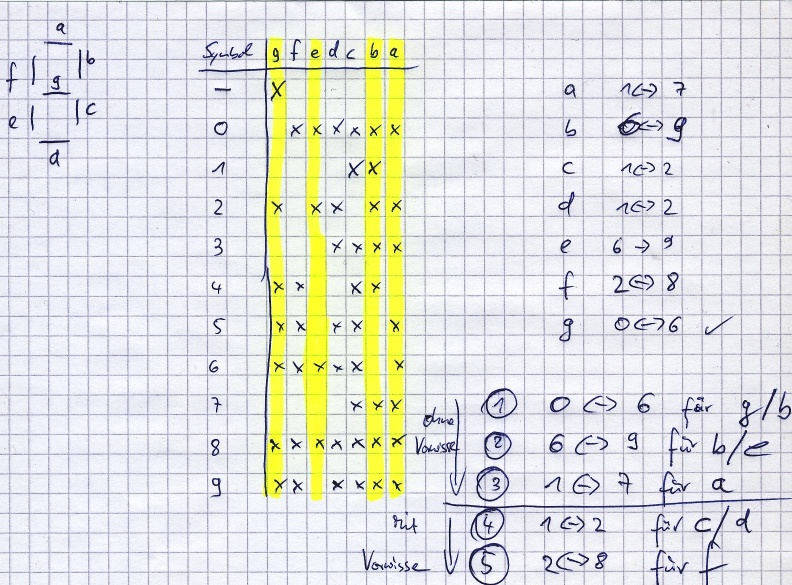 a
f b
g
e c
d
Symbol g f e d c b a
– x
0 x x x x x x
1 x x
2 x x x x x
3 x x x x
4 x x x x
5 x x x x x
6 x x x x x x
7 x x x
8 x x x x x x x
9 x x x x x x
a 1<->7
b 6<->9
c 1<->2
d 1<->2
e 6->9
f 2<->8
g 0<->6 ✓
ohne Vorwisse
① 0 <-> 6 für g/b
② 6 <-> 9 für b/e
③ 1 <-> 7 für a
mit Vorwisse
④ 1<->2 für c/d
⑤ 2<->8 für f